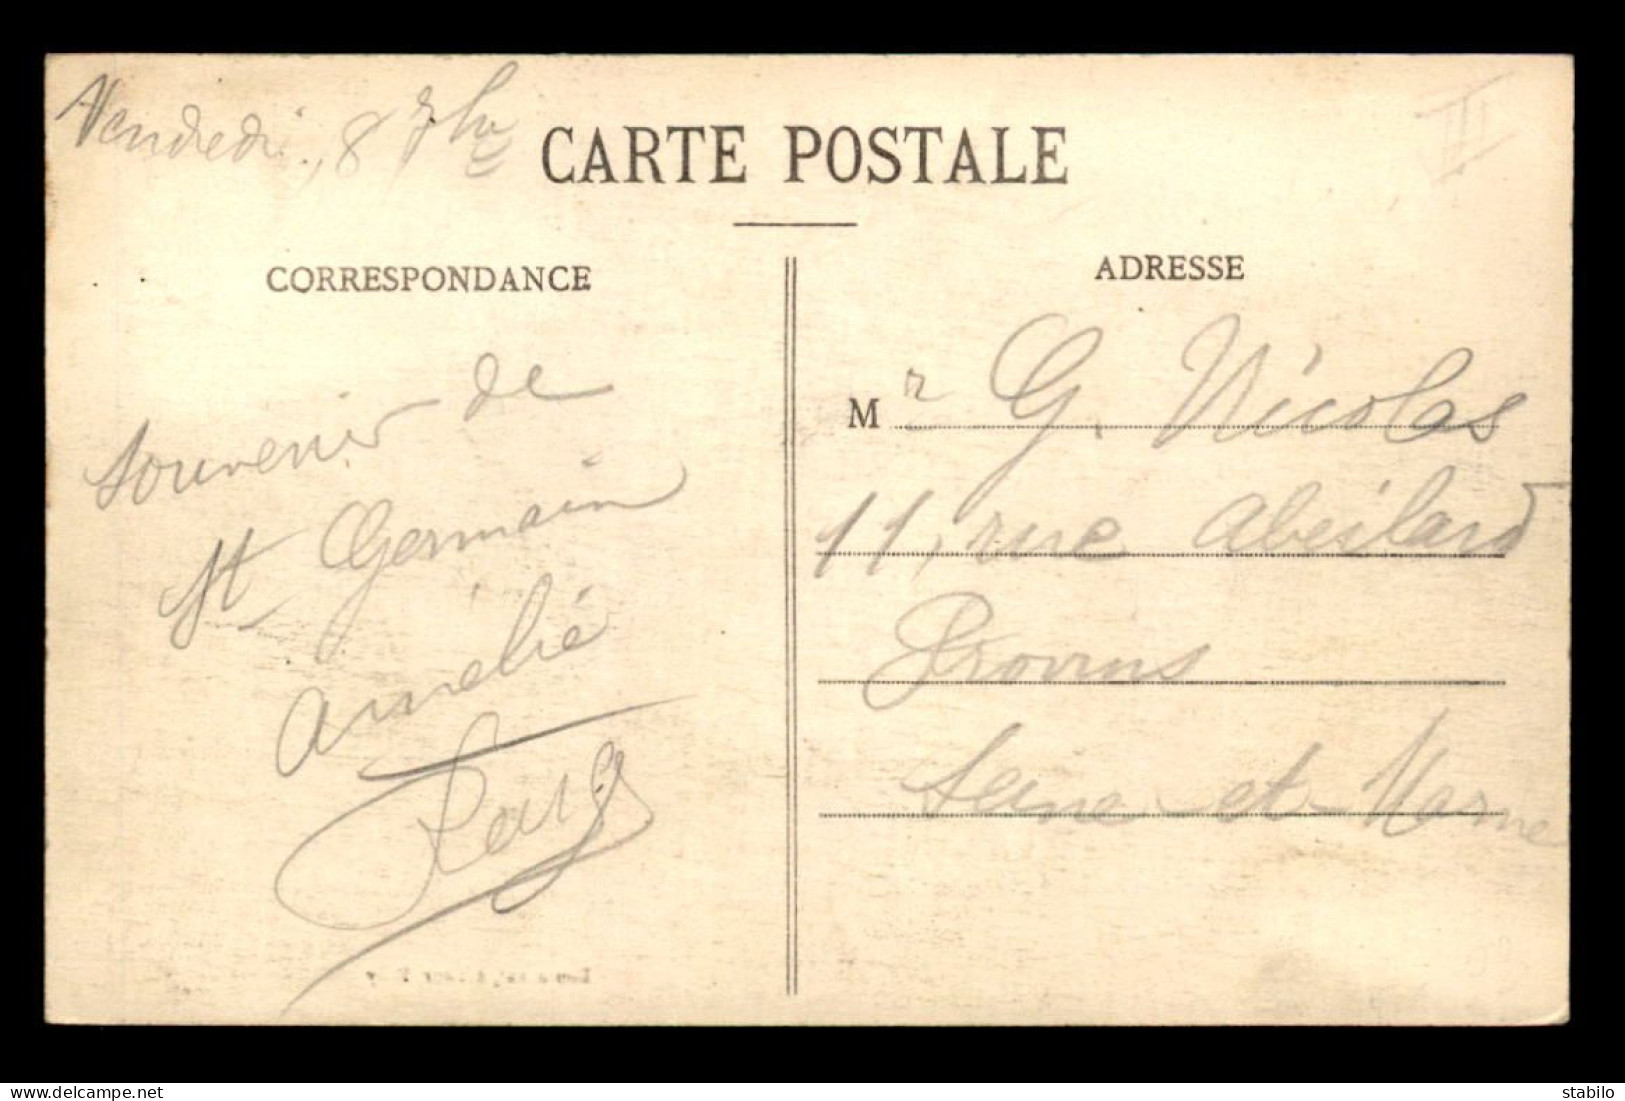 Vendredi, 8 7bre
CARTE POSTALE
CORRESPONDANCE
souvenir de
St Germain
Amélie
ADRESSE
Mr G. Nicolas
11, rue Abeilard
Provins
Seine-et-Marne
III
delcampe.net
stabilo